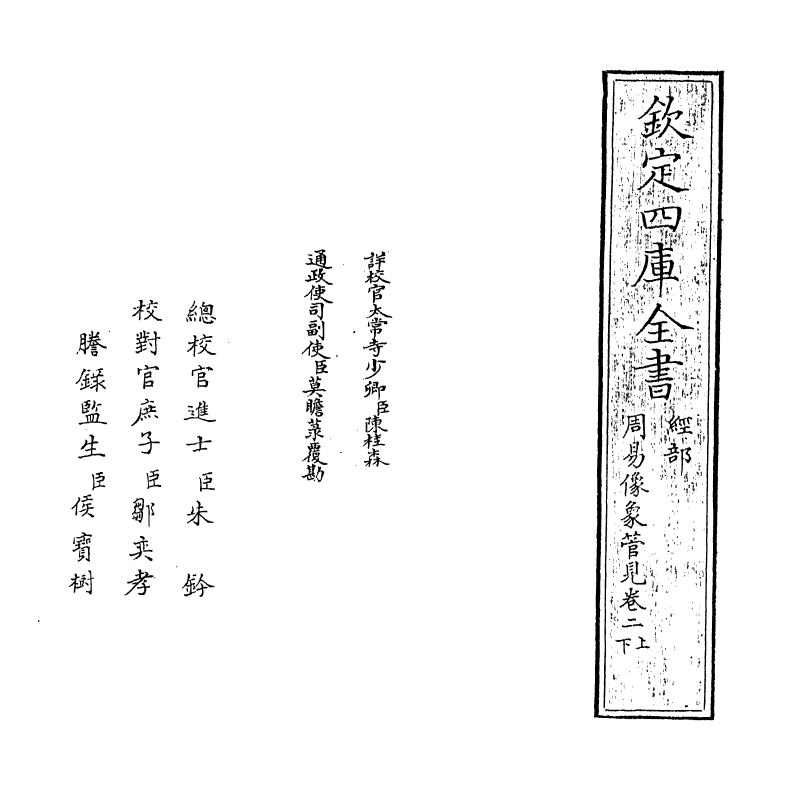 欽定四庫全書
經部
周易像象管見卷二上下
詳校官太常寺少卿臣陳桂森
通政使司副使臣莫瞻菉覆勘
總校官進士臣朱鈐
校對官庶子臣鄒奕孝
謄錄監生臣侯寶樹